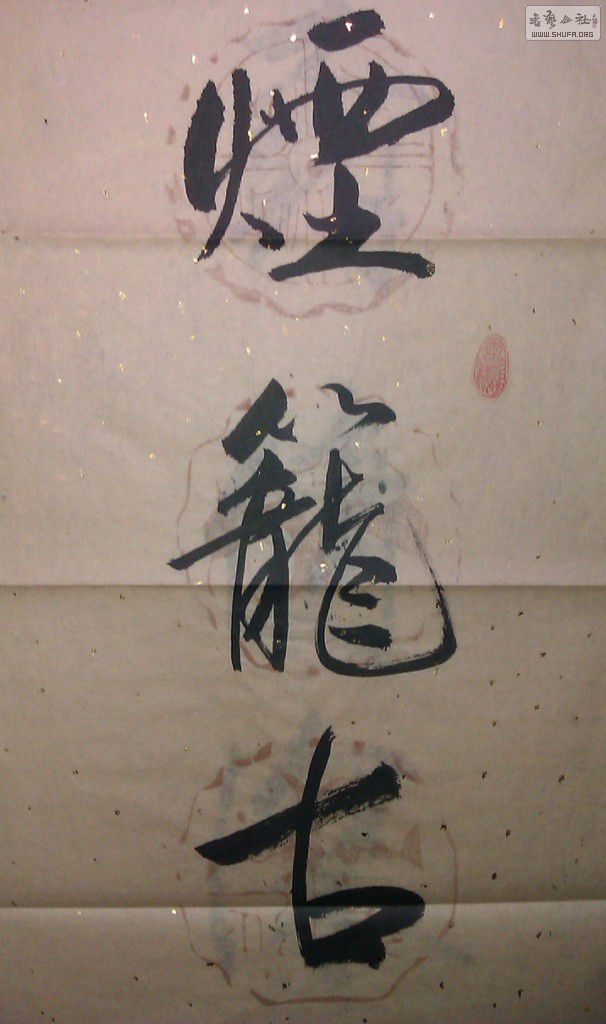 煙籠古
書法公社
WWW.SHUFA.ORG